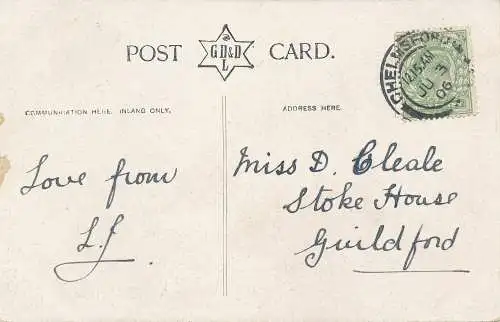 POST CARD.
G D & D
L
CHELMSFORD
12.15 AM
JU 3
06
COMMUNICATION HERE. INLAND ONLY.
ADDRESS HERE.
Love from
L.J
Miss D. Cleale
Stoke House
Guildford